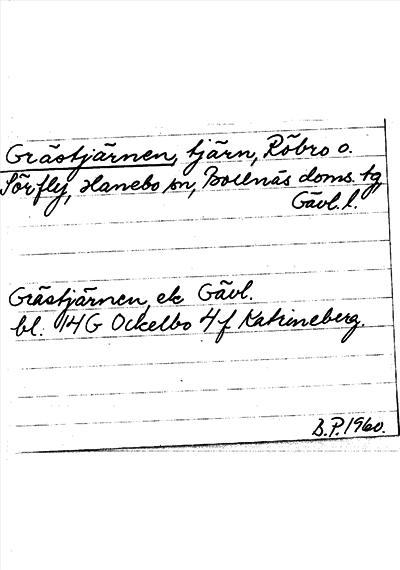 Grästjärnen, tjärn, Röbro o.
Sörfly, Hanebo sn, Bollnäs doms. tg
Gävl. l.
Grästjärnen, ek Gävl.
bl. 14G Ockelbo 4f Katrineberg.
B.P. 1960.